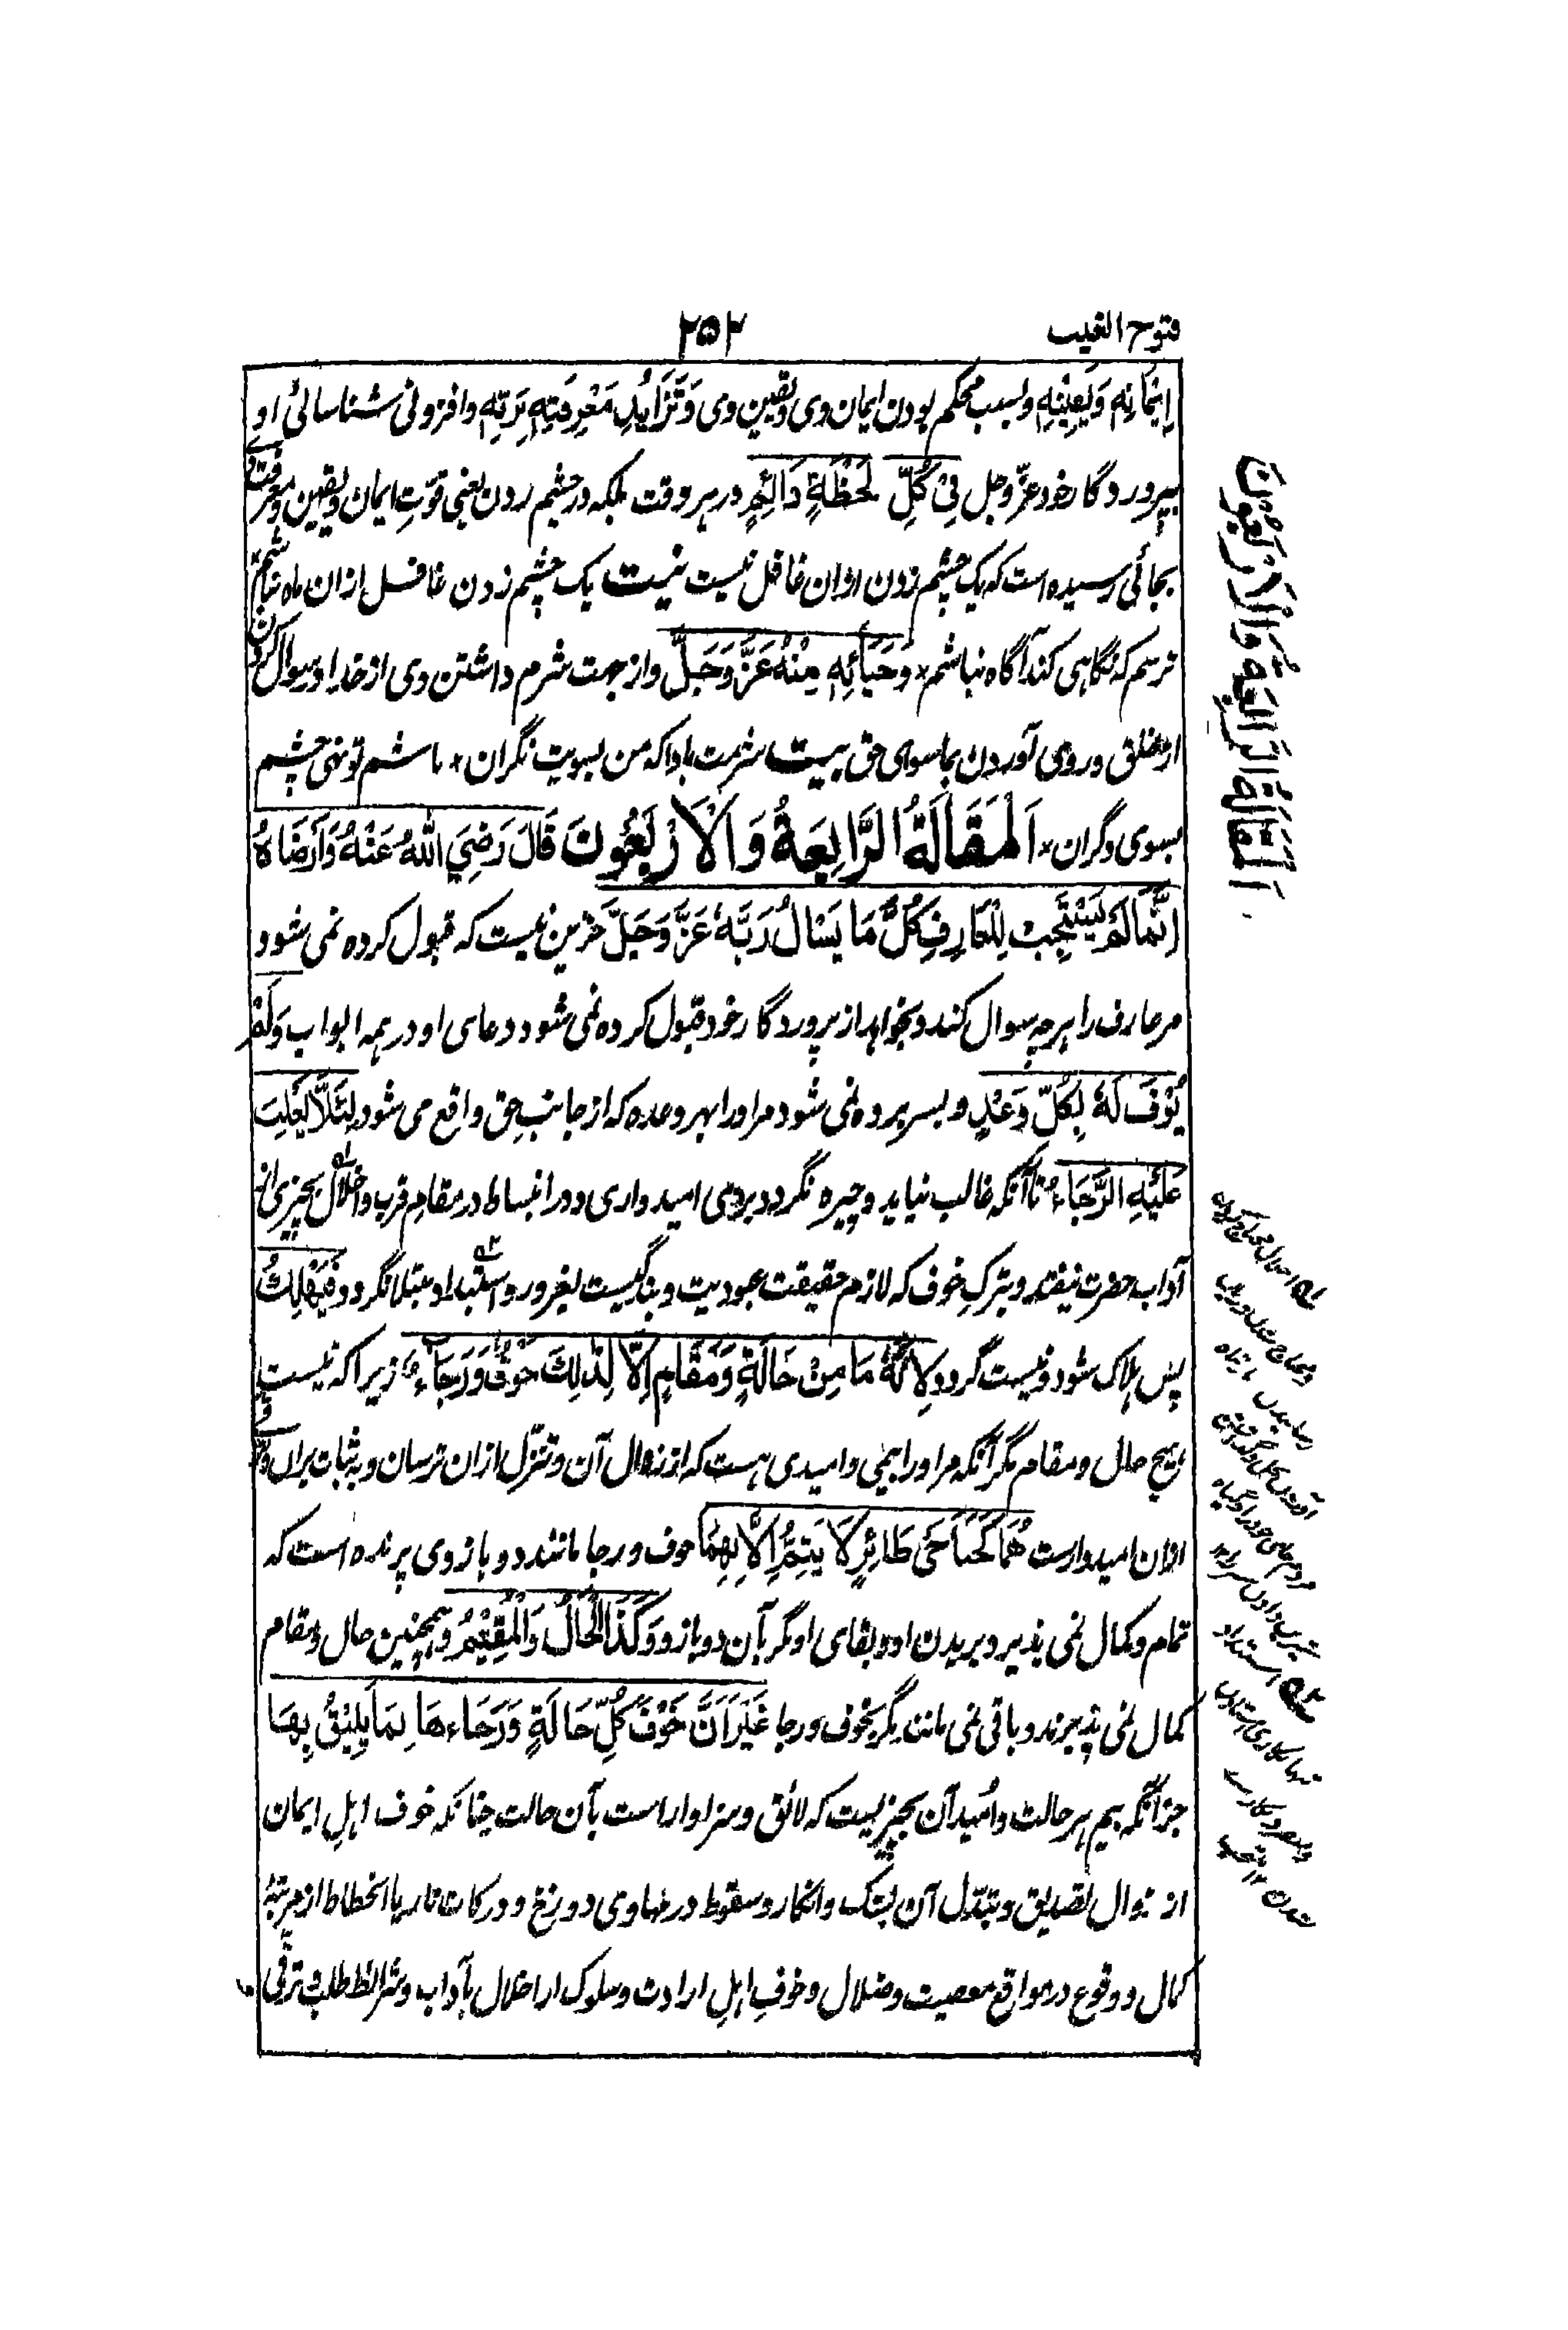 فتوح الغیب
۲۵۲
اِیْمَانِهٖ وَیَقِیْنِهٖ وبسبب محکم بودن ایمان وی ویقین وی وَتَزَایُدِ مَعْرِفَتِهٖ بِرَبِّهٖ وافزونی شناسائی او
بپروردگار خود عزّوجل فِیْ کُلِّ لَحْظَةٍ دَائِمٍ در هر وقت بلکه در چشم زدن یعنی قوّتِ ایمان ویقین ومعرفت
بجائی رسیده است که یک چشم زدن ازان غافل نیست بیت یک چشم زدن غافل ازان ماه نباشم
ترسم که نگاهی کند آگاه نباشم * وَحَیَائِهٖ مِنْهُ عَزَّ وَجَلَّ واز جهت شرم داشتن وی از خدا وسوال کردن
از خلق وروی آوردن بماسوای حق بیت شرمت بادا که من بسویت نگران * باشم تو نهی چشم
بسوی دگران * اَلْمَقَالَةُ الرَّابِعَةُ وَالْاَرْبَعُوْنَ قَالَ رَضِيَ اللّٰهُ عَنْهُ وَاَرْضَاهُ
اِنَّمَا لَمْ یُسْتَجَبْ لِلْعَارِفِ کُلُّ مَا یَسْاَلُ رَبَّهٗ عَزَّ وَجَلَّ جزین نیست که قبول کرده نمی شود
مر عارف را هر چه سوال کند وبخواهد از پروردگار خود قبول کرده نمی شود دعای او در همه ابواب وَلَمْ
یُوْفَ لَهٗ بِکُلِّ وَعْدٍ وبسر برده نمی شود مر او را بهر وعده که از جانب حق واقع می شود لِئَلَّا یَغْلِبَ
عَلَیْهِ الرَّجَاءُ تا آنکه غالب نیاید وچیره نگردد بر وی امیدواری ودر انبساط در مقام قرب واخلال بچیزی از
آداب حضرت نیفتد وبترکِ خوف که لازم حقیقت عبودیت وبندگیست بغرور واستبداد مبتلا نگردد فَیَهْلِكُ
پس هلاک شود ونیست گردد لِاَنَّهٗ مَا مِنْ حَالَةٍ وَمَقَامٍ اِلَّا لِذٰلِكَ خَوْفٌ وَرَجَاءٌ زیرا که نیست
هیچ حال ومقام مگر آنکه مر او را بیمی وامیدی هست که از زوال آن وتنزّل ازان ترسان وبه ثبات بران
ازان امیدوارست هُمَا کَجَنَاحَیْ طَائِرٍ لَا یَتِمُّ اِلَّا بِهِمَا خوف ورجا مانند دو بازوی پرنده است که
تمام وکمال نمی پذیرد پریدن او وبقای او مگر بآن دو بازو وَکَذَا الْحَالُ وَالْمُقِیْمُ وهمچنین حال ومقام
کمال نمی پذیرند وباقی نمی مانند مگر بخوف ورجا غَیْرَ اَنَّ خَوْفَ کُلِّ حَالَةٍ وَرَجَاءَهَا بِمَا یَلِیْقُ بِهَا
جز آنکه بیم هر حالت وامید آن بچیزیست که لائق وسزاوار است بآن حالت چنانکه خوف اهلِ ایمان
از زوال تصدیق وتبدّل آن بشک وانکار وسقوط در مهاوی دوزخ ودرکات نار یا انحطاط از مرتبۀ
کمال ووقوع در مواقع معصیت وضلال وخوفِ اهلِ ارادت وسلوک از اخلال بآداب وشرائط طلب وترقی
اَلْمَقَالَةُ الرَّابِعَةُ وَالْاَرْبَعُوْنَ